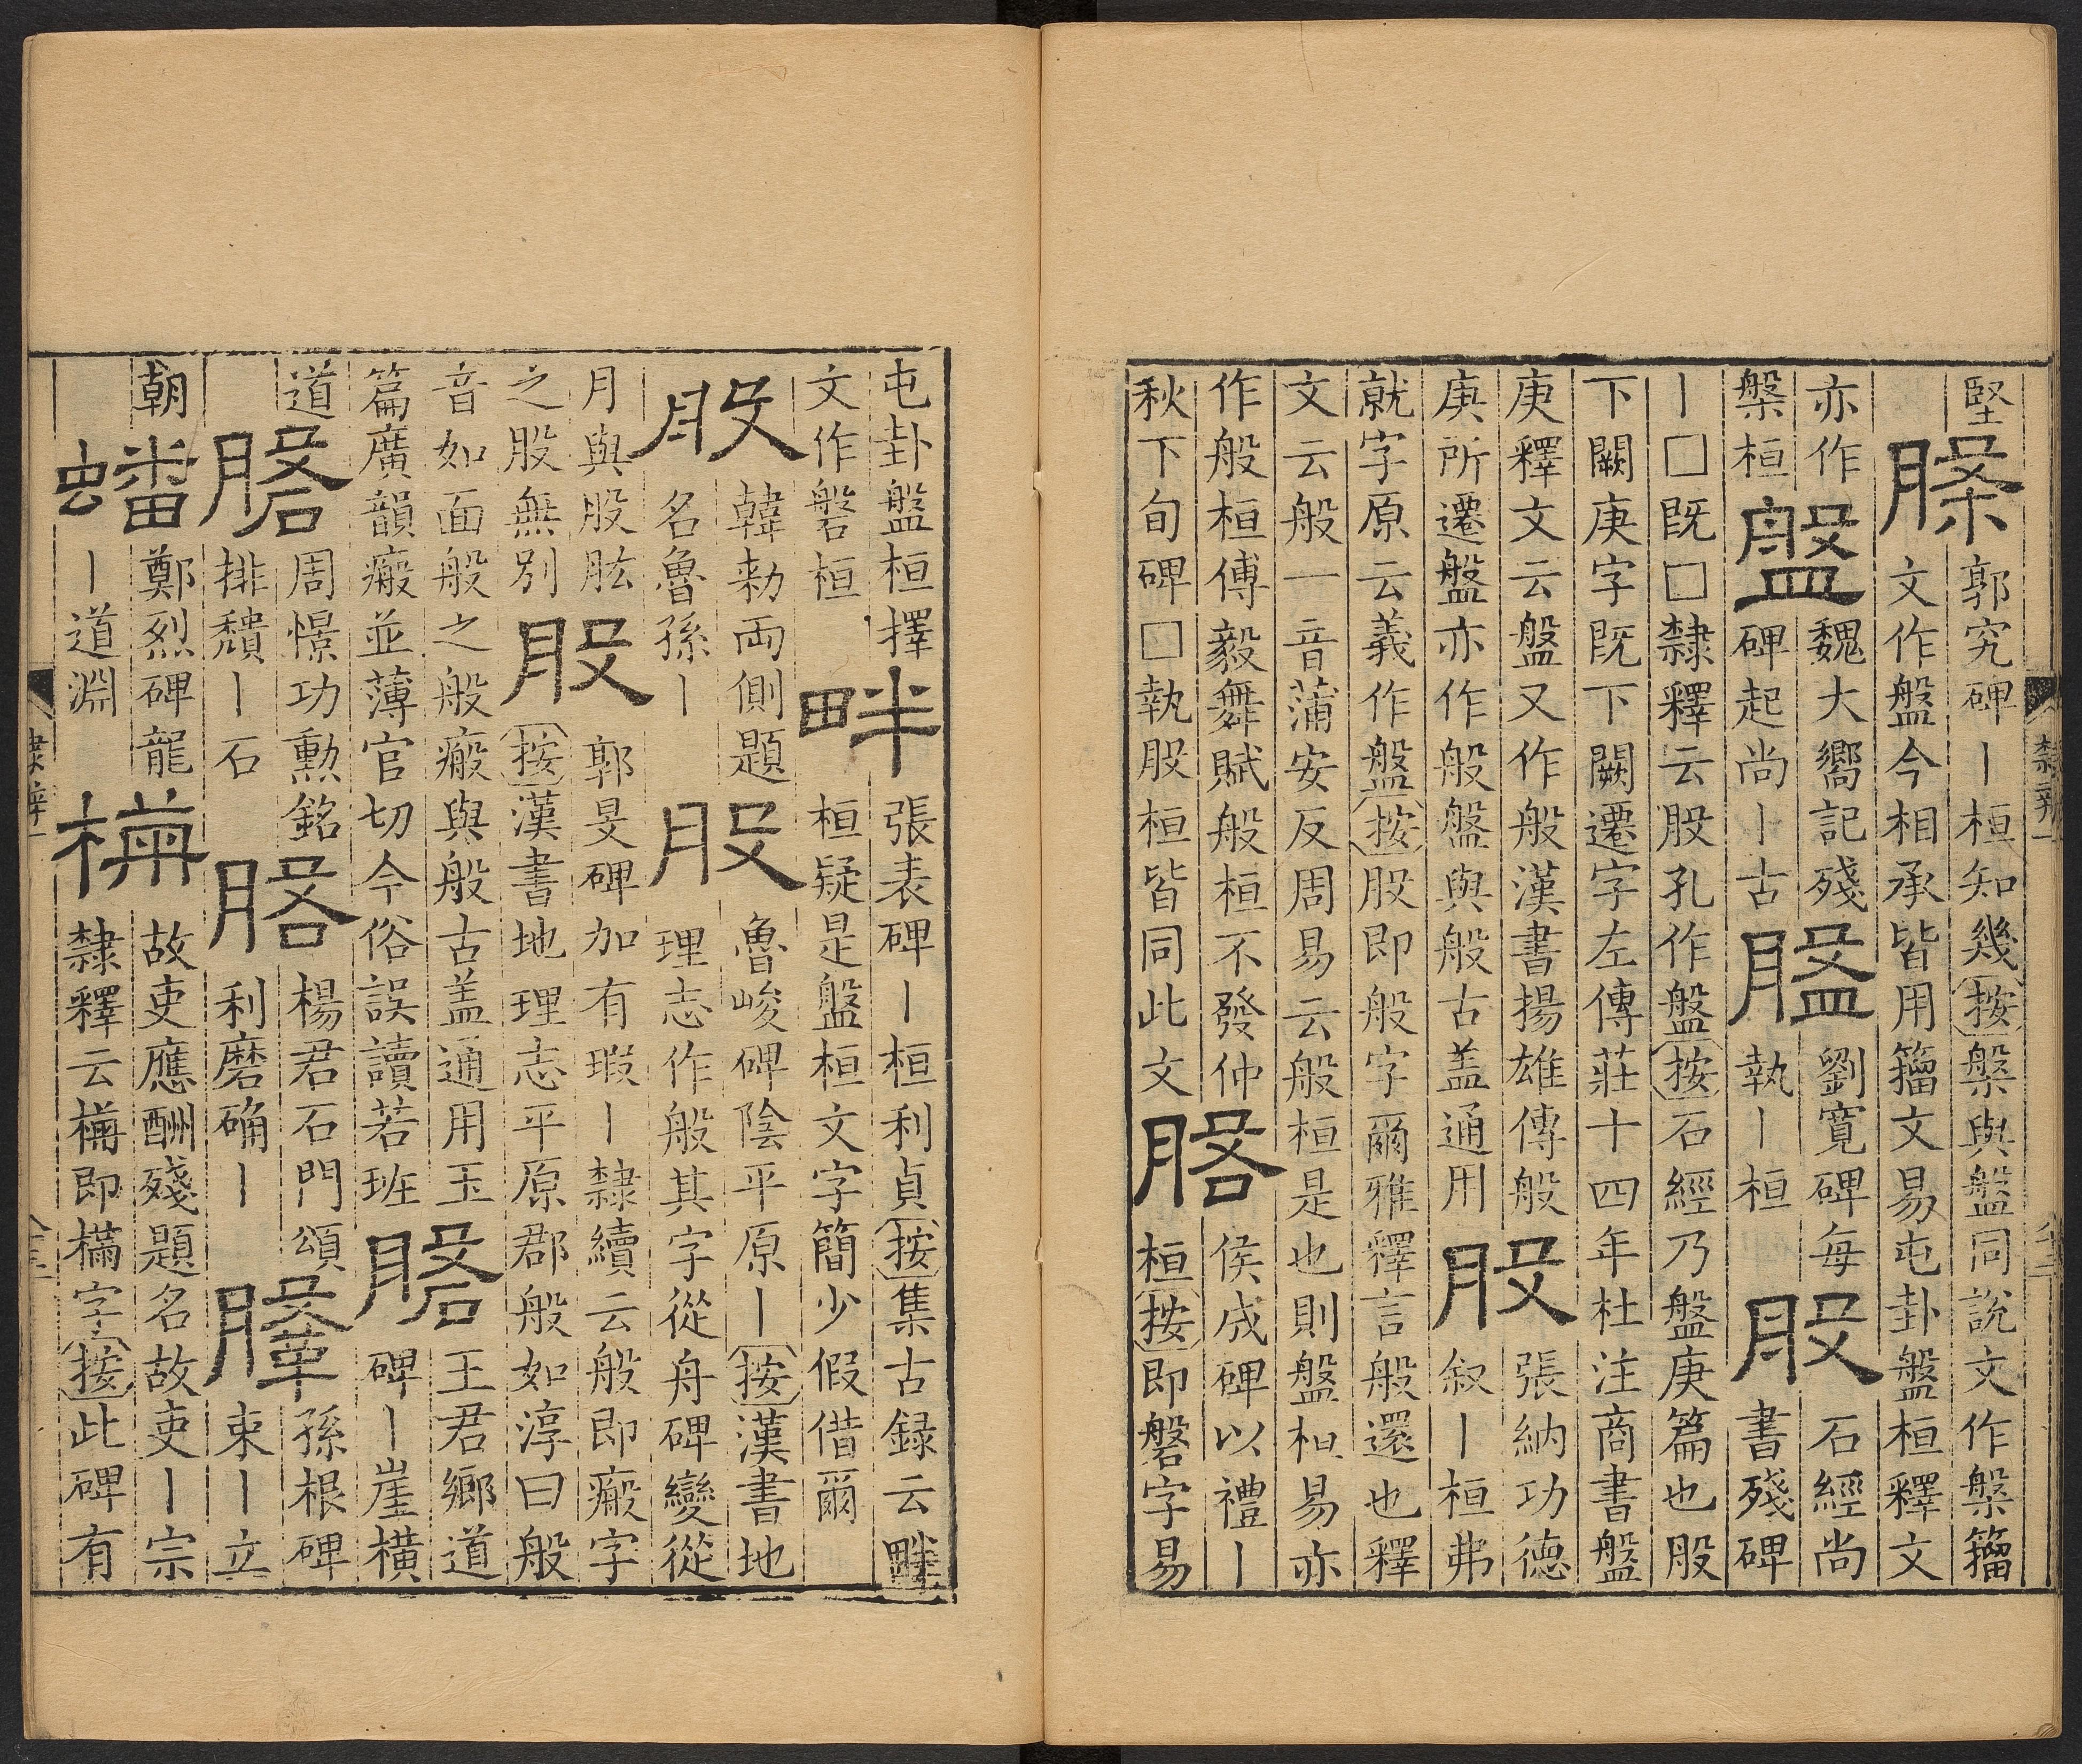 堅槃郭究碑丨桓知幾按槃與盤同說文作槃籀
文作盤今相承皆用籀文易屯卦盤桓釋文
亦作盤魏大嚮記殘盤劉寬碑每股石經尚
槃桓碑起尚丨古執丨桓書殘碑
丨□既□隸釋云股孔作盤按石經乃盤庚篇也股
下闕庚字既下闕遷字左傳莊十四年杜注商書盤
庚釋文云盤又作般漢書揚雄傳般股張納功德
庚所遷盤亦作般盤與般古盖通用叙丨桓弗
就字原云義作盤按股即般字爾雅釋言般還也釋
文云般一音蒲安反周易云般桓是也則盤桓易亦
作般桓傅毅舞賦般桓不發仲磐侯成碑以禮丨
秋下旬碑□執股桓皆同此文桓按即磐字易
屯卦盤桓擇畔張表碑丨桓利貞按集古録云畔
文作磐桓桓疑是盤桓文字簡少假借爾
股韓勑両側題股魯峻碑陰平原丨按漢書地
名魯孫丨理志作般其字從舟碑變從
月與股肱股郭旻碑加有瑕丨隸續云般即瘢字
之股無別按漢書地理志平原郡般如淳曰般
音如面般之般瘢與般古盖通用玉磐王君鄉道
篇廣韻瘢並薄官切今俗誤讀若班碑丨崖橫
道磐周憬功勳銘磐楊君石門頌鞶孫根碑
排穨丨石利磨确丨束丨立
朝蟠鄭烈碑龍樠故吏應酬殘題名故吏丨宗
丨道淵隸釋云樠即樠字按此碑有